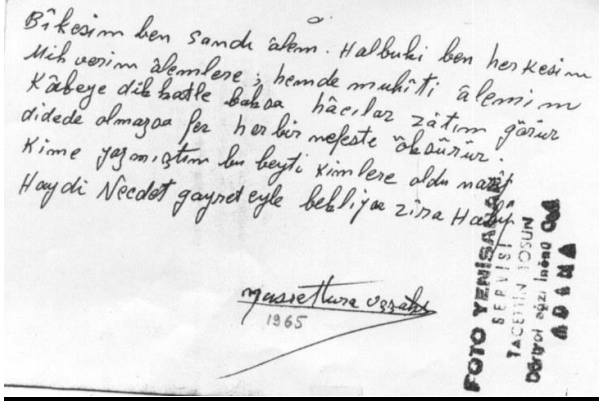 Bîkesim ben sandı âlem. Halbuki ben herkesim
Mihverim âlemlere, hemde muhîti âlemim
Kâbeye dikkatle baksa hâcılar zâtım görür
didede olmazsa fer her bir nefeste öksürür.
Kime yazmıştım bu beyti kimlere oldu nasip
Haydi Necdet gayret eyle bekliyor zira Habip
1965
FOTO YENİSANAT
SERVİSİ
TACETTİN TOSUN
Dörtyol ağzı İnönü Cad.
ADANA